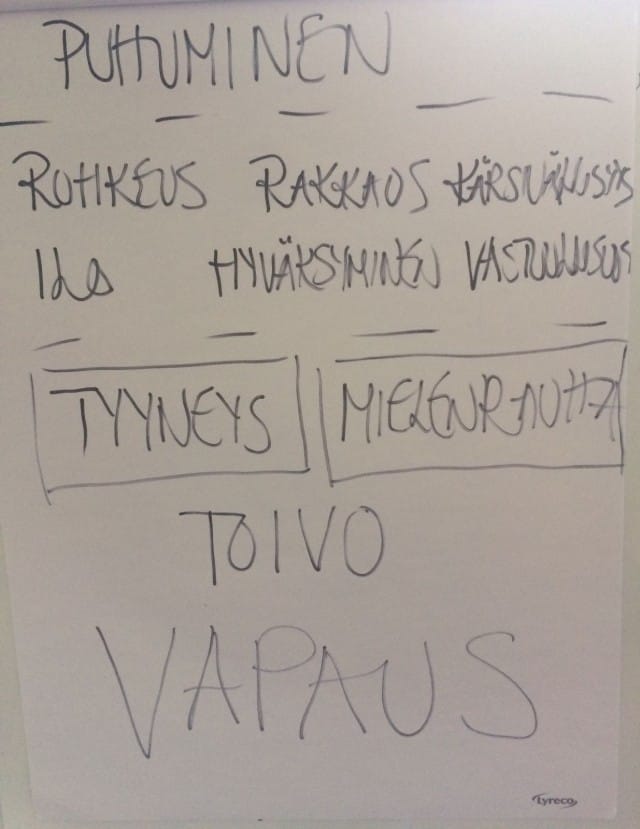 PUHUMINEN
ROHKEUS RAKKAUS KÄRSIVÄLLISYYS
ILO HYVÄKSYMINEN VASTUULLISUUS
TYYNEYS MIELENRAUHA
TOIVO
VAPAUS
Lyreco